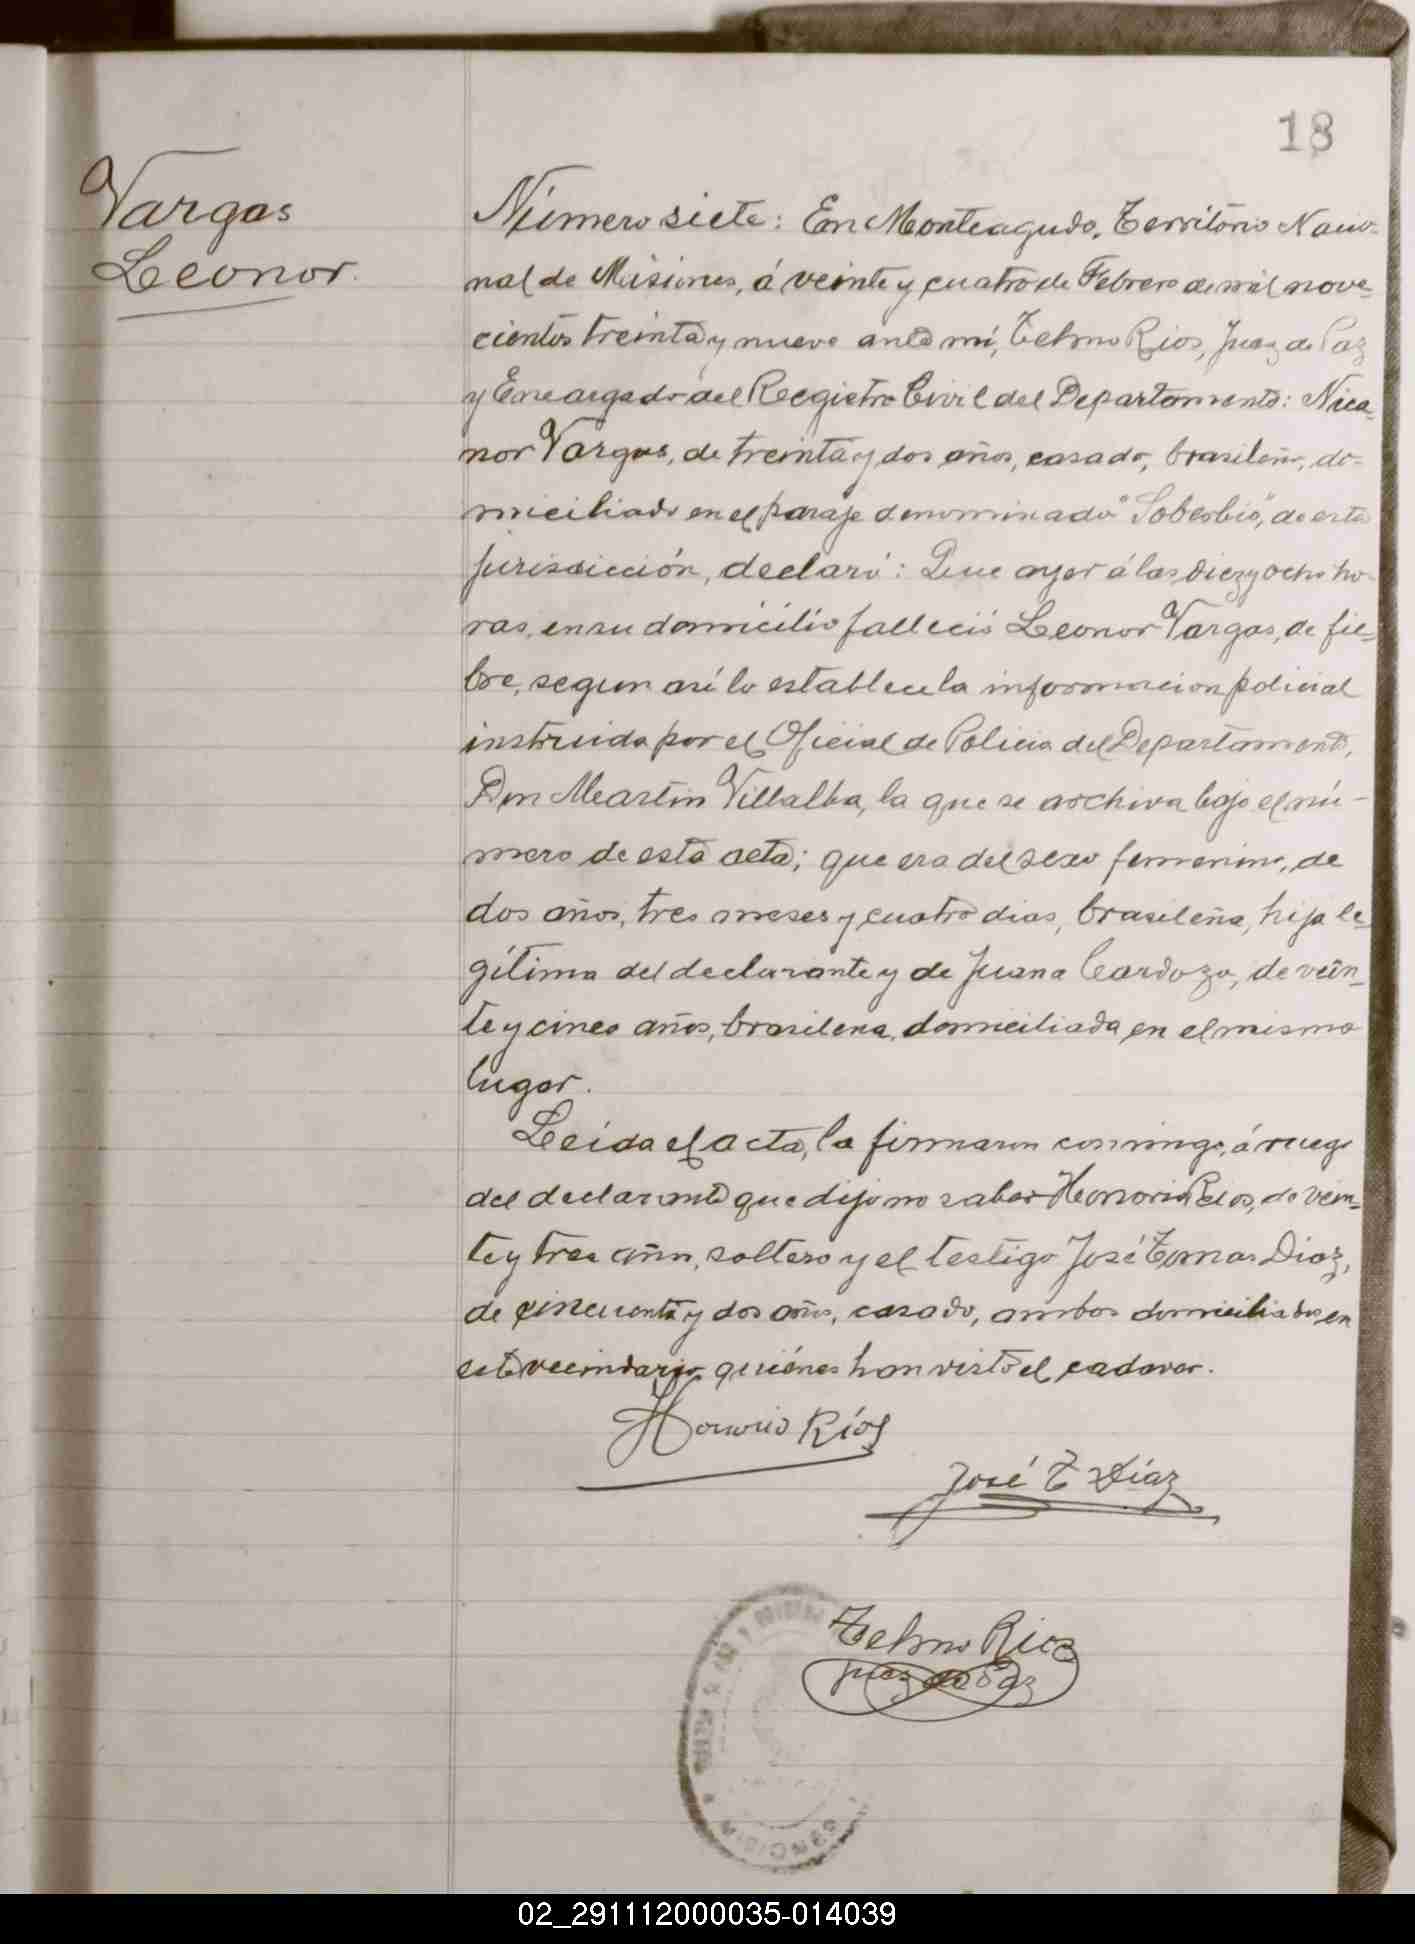 18
Vargas
Leonor.
Número siete: En Monteagudo, Território Nacio-
nal de Misiones, á veinte y cuatro de Febrero de mil nove-
cientos treinta y nueve ante mí, Telmo Rios, Juez de Paz
y Encargado del Registro Civil del Departamento: Nica-
nor Vargas, de treinta y dos años, casado, brasileño, do-
miciliado en el paraje denominado "Soberbio", de esta
jurisdicción, declaró: Que ayer á las diez y ocho ho-
ras, en su domicilio falleció Leonor Vargas, de fie-
bre, segun así lo establece la informacion policial
instruida por el Oficial de Policia del Departamento,
Don Martin Villalba, la que se archiva bajo el nú-
mero de esta acta; que era del sexo femenino, de
dos años, tres meses y cuatro dias, brasileña, hija le-
gítima del declarante y de Juana Cardozo, de vein-
te y cinco años, brasilena, domiciliada en el mismo
lugar.
Leida el acta, la firmaron conmigo, á ruego
del declarante que dijo no saber Honorio Rios, de vein-
te y tres años, soltero y el testigo José Tomas Diaz,
de cincuenta y dos años, casado, ambos domiciliados en
este vecindario quiénes han visto el cadaver.
Honorio Ríos
José T Díaz
Telmo Rios
Juez de Paz
MISIONES
02_291112000035-014039